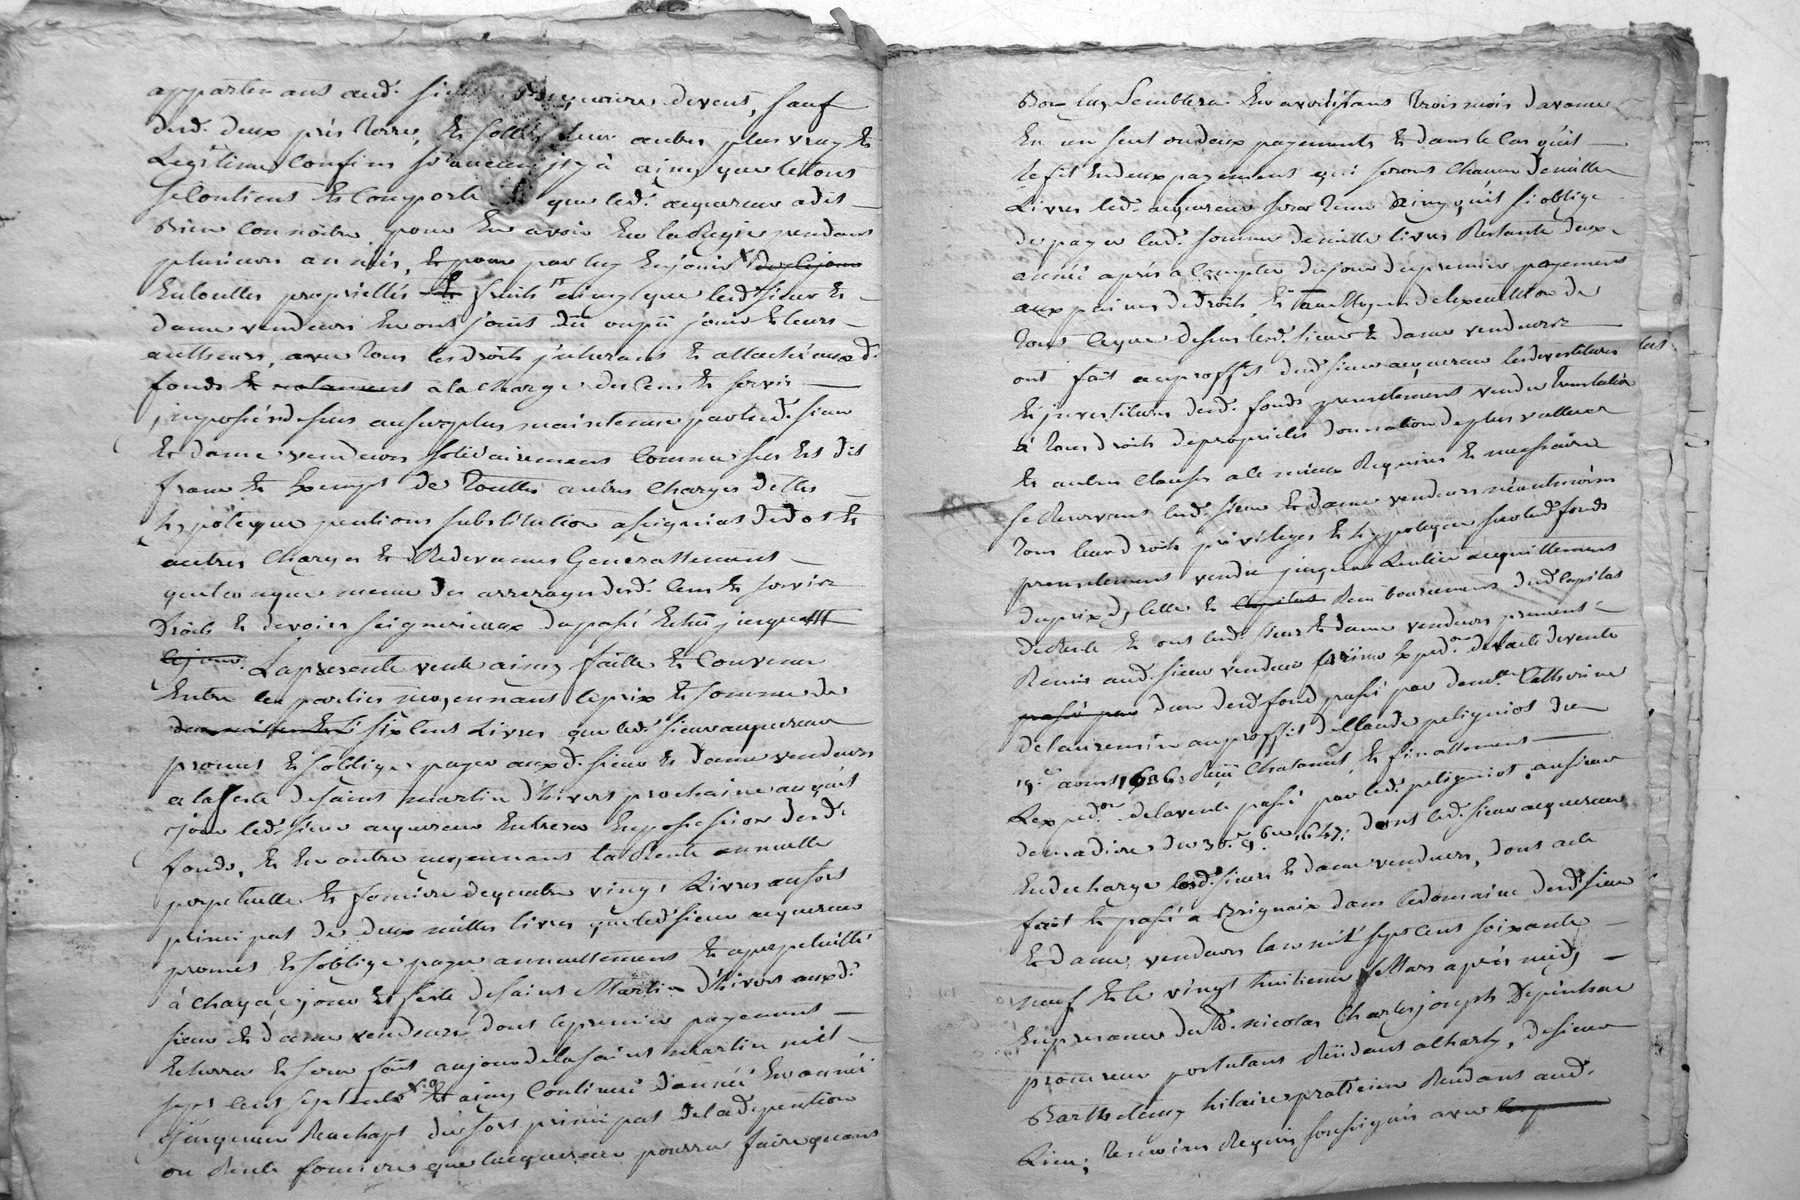 appartenans aud. sieur vendeur devent, sauf
desd. deux prés terres, et solles leur autres plus vray et
Legitimes Confins sy aucun jl y à ainsy que le tout
se Contient et Comporte que led. acquereur a dit
Bien Connoitre pour En avoir Eu la Regie pendant
plusieurs années, et pour par luy En jouir de ce jour
En touttes proprietés et fruits ainsy que lesd. sieur et
dame vendeurs En ont joüit dû ou pû jouir et leurs
autheurs, avec tous les droits jnherants et attachés auxd.
fonds et notamment a la Charge des Cens et servis
jmposés dessus au surplus maintenue par lesd. sieur
et dame vendeurs solidairement Comme sus est dit
franc et Exempt de Touttes autres Charges dettes
hypoteque pentions substitution assignias de dot et
autres Charges et Redevances Generallement
quelconque meme des arrerages desd. Cens et servis
Droits et devoirs seigneuriaux du passé Echû jusques
ce jour. La presente vente ainsy faitte et Convenue
Entre les parties moyennant le prix et somme de
deux mille et six Cent Livres que led. sieur acquereur
promet et s'oblige payer auxd. sieur et dame vendeurs
a la feste de saint martin d'hivert prochaine auquel
jour led. sieur acquereur Entrera En possession desd.
fonds, et En outre moyennant la Rente annuelle
perpetuelle et fonciere de quatre vingt Livres au sort
principal de deux milles livres que led. sieur acquereur
promet et s'oblige payer annuellement et a perpetuitté
à chaque jour et feste de saint Martin d'hivert auxd.
sieur et dame vendeurs dont le premier payement
Echerra et sera fait au jour de la saint martin mil
sept cent septante et ainsy Continué d'année En année
jusques au Rachapt du sort principal de lad. pention
ou Rente fonciere que l'acquereur pourra faire quand
Bon luy semblera En avertissant trois mois d'avance
En un seul ou deux payements et dans le Cas qu'il
le fit En deux payements qui seront Chacun de mille
Livres led. acquereur sera tenu ainsy qu'il s'oblige
de payer lad. somme de mille livres Restante deux
années après a Compter du jour du premier payement
aux peines de droits, et au moyen de l'execution de
tout ce que dessus lesd. sieur et dame vendeurs
ont fait au proffit dud. sieur acquereur les devestitures
et jnvestitures desd. fonds presentement vendu translation
à tous droits de proprietés donnation de plus valleur
et autres Clauses a ce mieux Requises et necessaires
se Reservant lesd. sieur et dame vendeurs néantmoins
tous leurs droits privileges et hypoteque sur lesd. fonds
presentement vendu jusques a l'entier acquittement
du prix d'jcelle et Capitas Remboursement dud. Capital
de Rente et ont lesd. sieur et dame vendeurs presentement
Remis aud. sieur vendeur premiere Exped.on de l'acte de vente
passé par d'un desd. fond passé par dem.lle Catherine
de laurencin au proffit de Claude peligniot du
19.e aoust 1636. Reçü Chatanut, et finallement
L'exped.on de la vente passé par led. peligniot, au sieur
demadiere du 30.e 9.bre 1647; dont led. sieur acquereur
En decharge lesd. sieurs et dame vendeurs, dont acte
fait et passé a Brignais dans le domaine desd. sieur
et dame vendeurs l'an mil sept cent soixante
neuf et le vingt huitieme Mars après midy
En presence de M.e nicolas Charles joseph Depinhac
procureur postulant Residant a Charly, et sieur
Barthelemy hilaire praticien Residant aud.
Lieu; temoins Requis soussignés avec